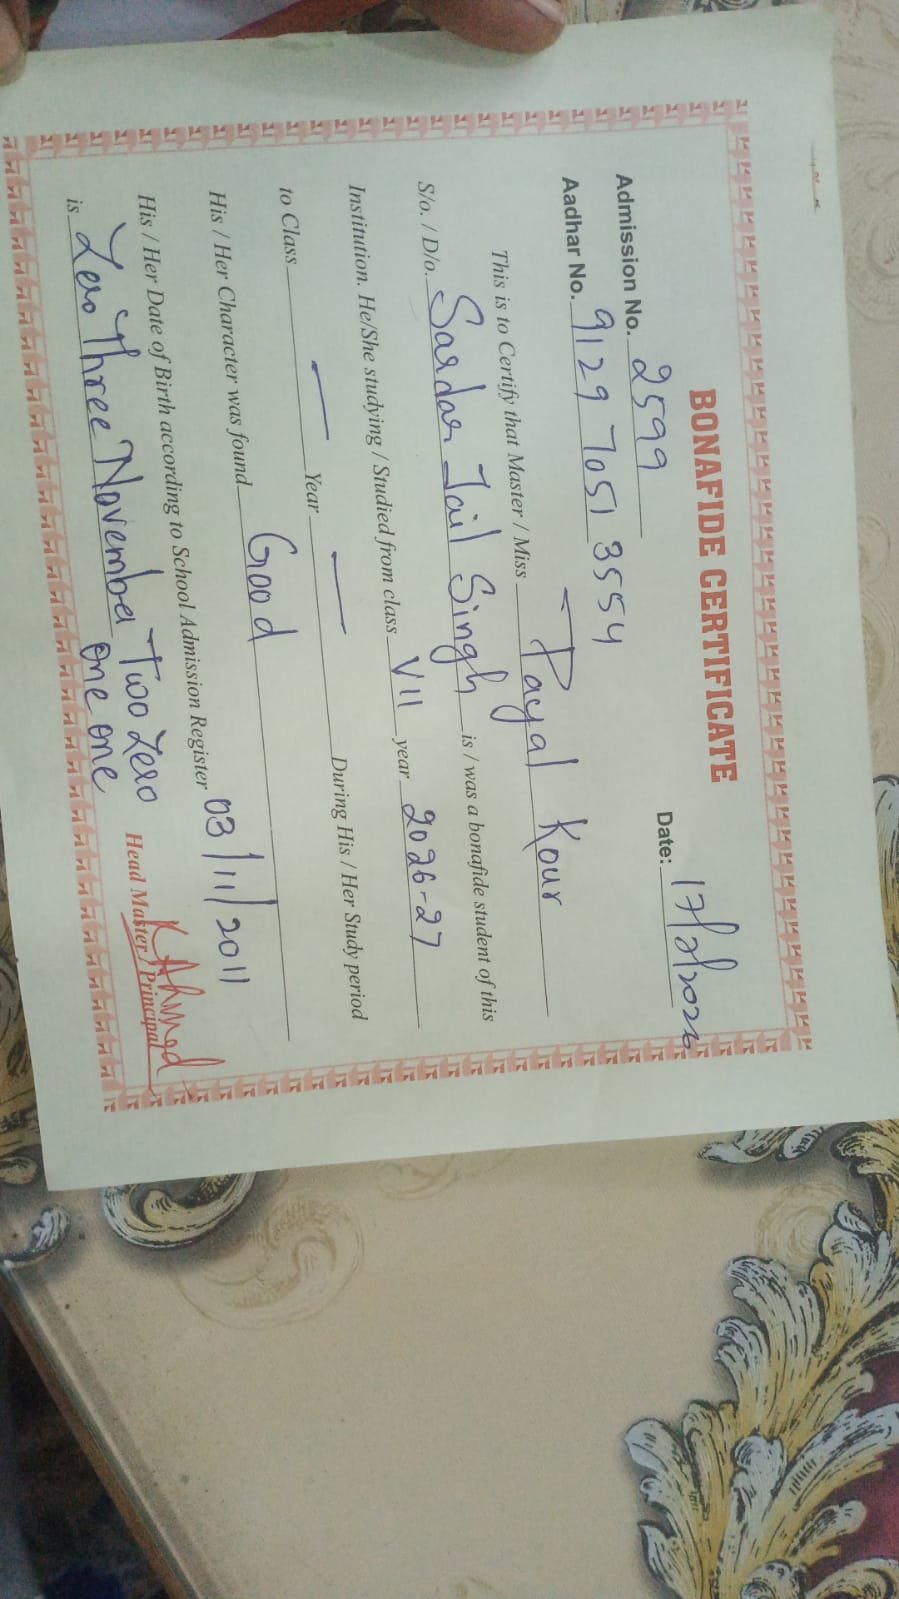 BONAFIDE CERTIFICATE
Admission No. 2599 Date: 17/2/2026
Aadhar No. 9129 7051 3554
This is to Certify that Master / Miss Payal Kour
S/o. / D/o. Sardar Jail Singh is / was a bonafide student of this
Institution. He/She studying / Studied from class VII year 2026-27
to Class — Year — During His / Her Study period
His / Her Character was found Good
His / Her Date of Birth according to School Admission Register 03/11/2011
is Zero Three November Two Zero
one one
Head Master / Principal